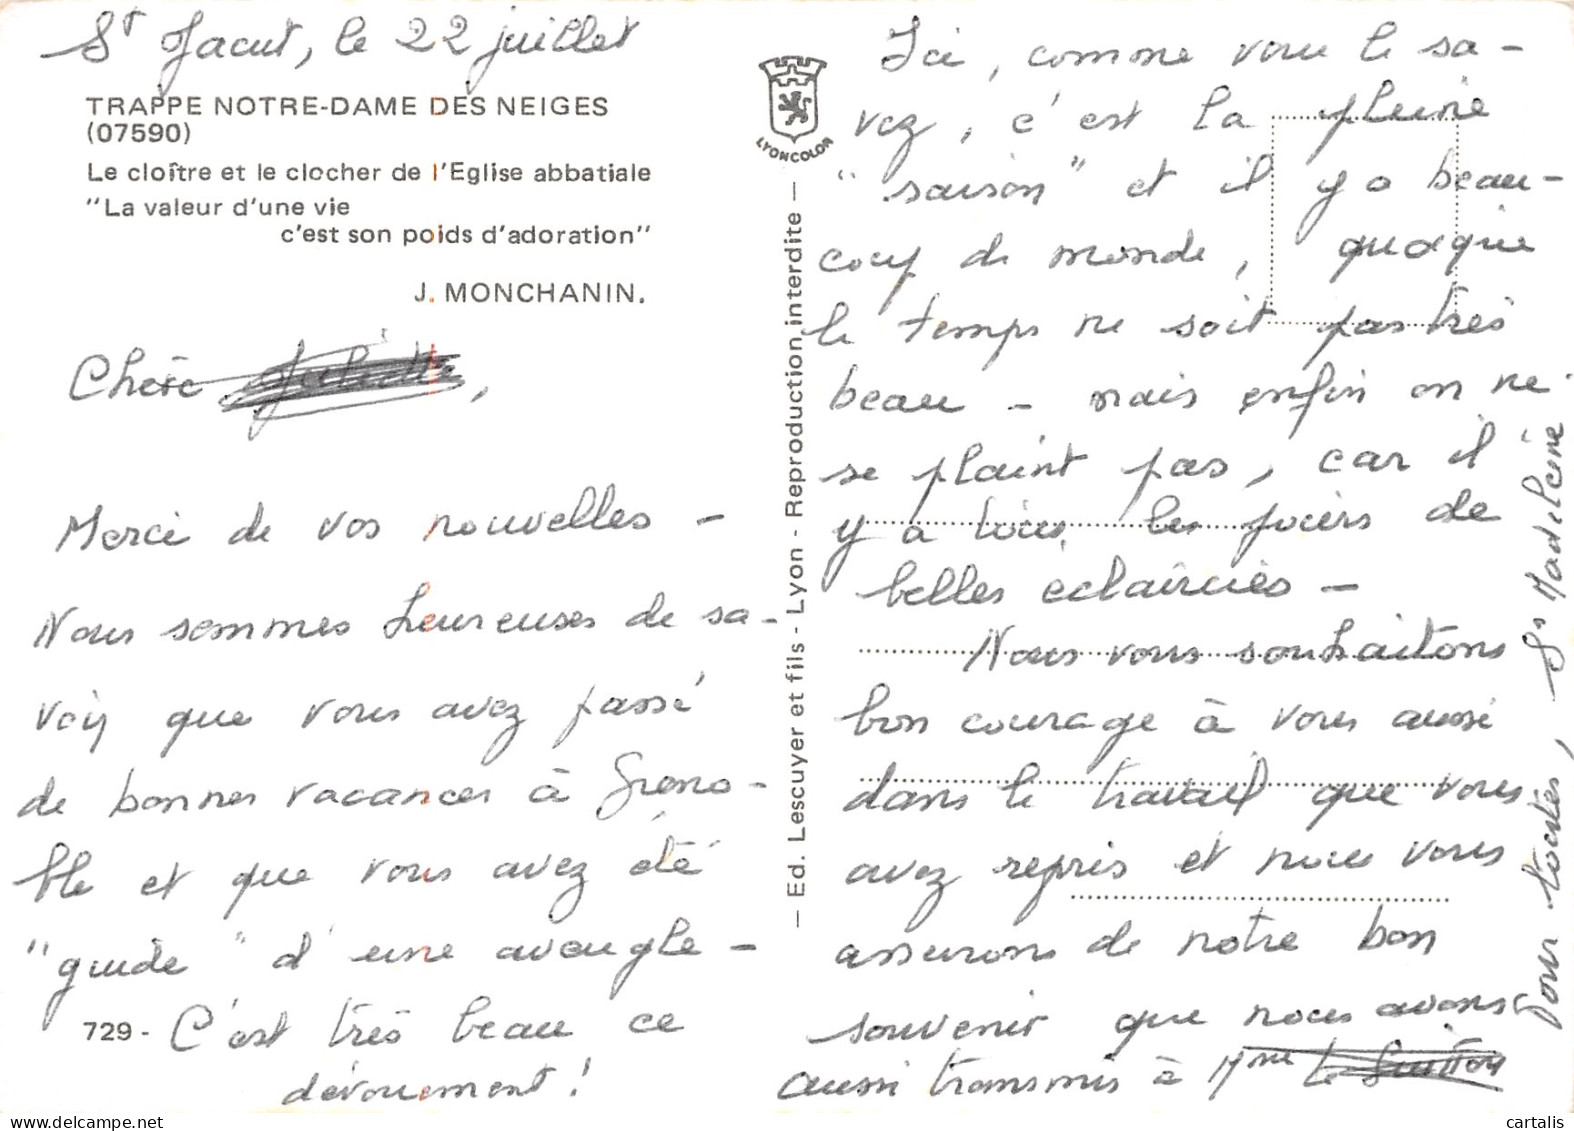 St Jacut, le 22 juillet
TRAPPE NOTRE-DAME DES NEIGES
(07590)
Le cloître et le clocher de l'Eglise abbatiale
"La valeur d'une vie
c'est son poids d'adoration"
J. MONCHANIN.
Chère
,
Merci de vos nouvelles -
Nous sommes heureuses de sa-
voir que vous avez passé
de bonnes vacances à Greno-
ble et que vous avez été
"guide" d'une aveugle -
729 -
C'est très beau ce
dévouement !
LYONCOLOR
— Ed. Lescuyer et fils - Lyon - Reproduction interdite —
Ici, comme vous le sa-
vez, c'est la pleine
"saison" et il y a beau-
coup de monde, quoique
le temps ne soit pas très
beau - mais enfin on ne
se plaint pas, car il
y a tous les jours de
belles éclaircies -
Nous vous souhaitons
bon courage à vous aussi
dans le travail que vous
avez repris et nous vous
assurons de notre bon
souvenir que nous avons
aussi transmis à Mme Le
Pour toutes, Sr Madeleine
cartalis